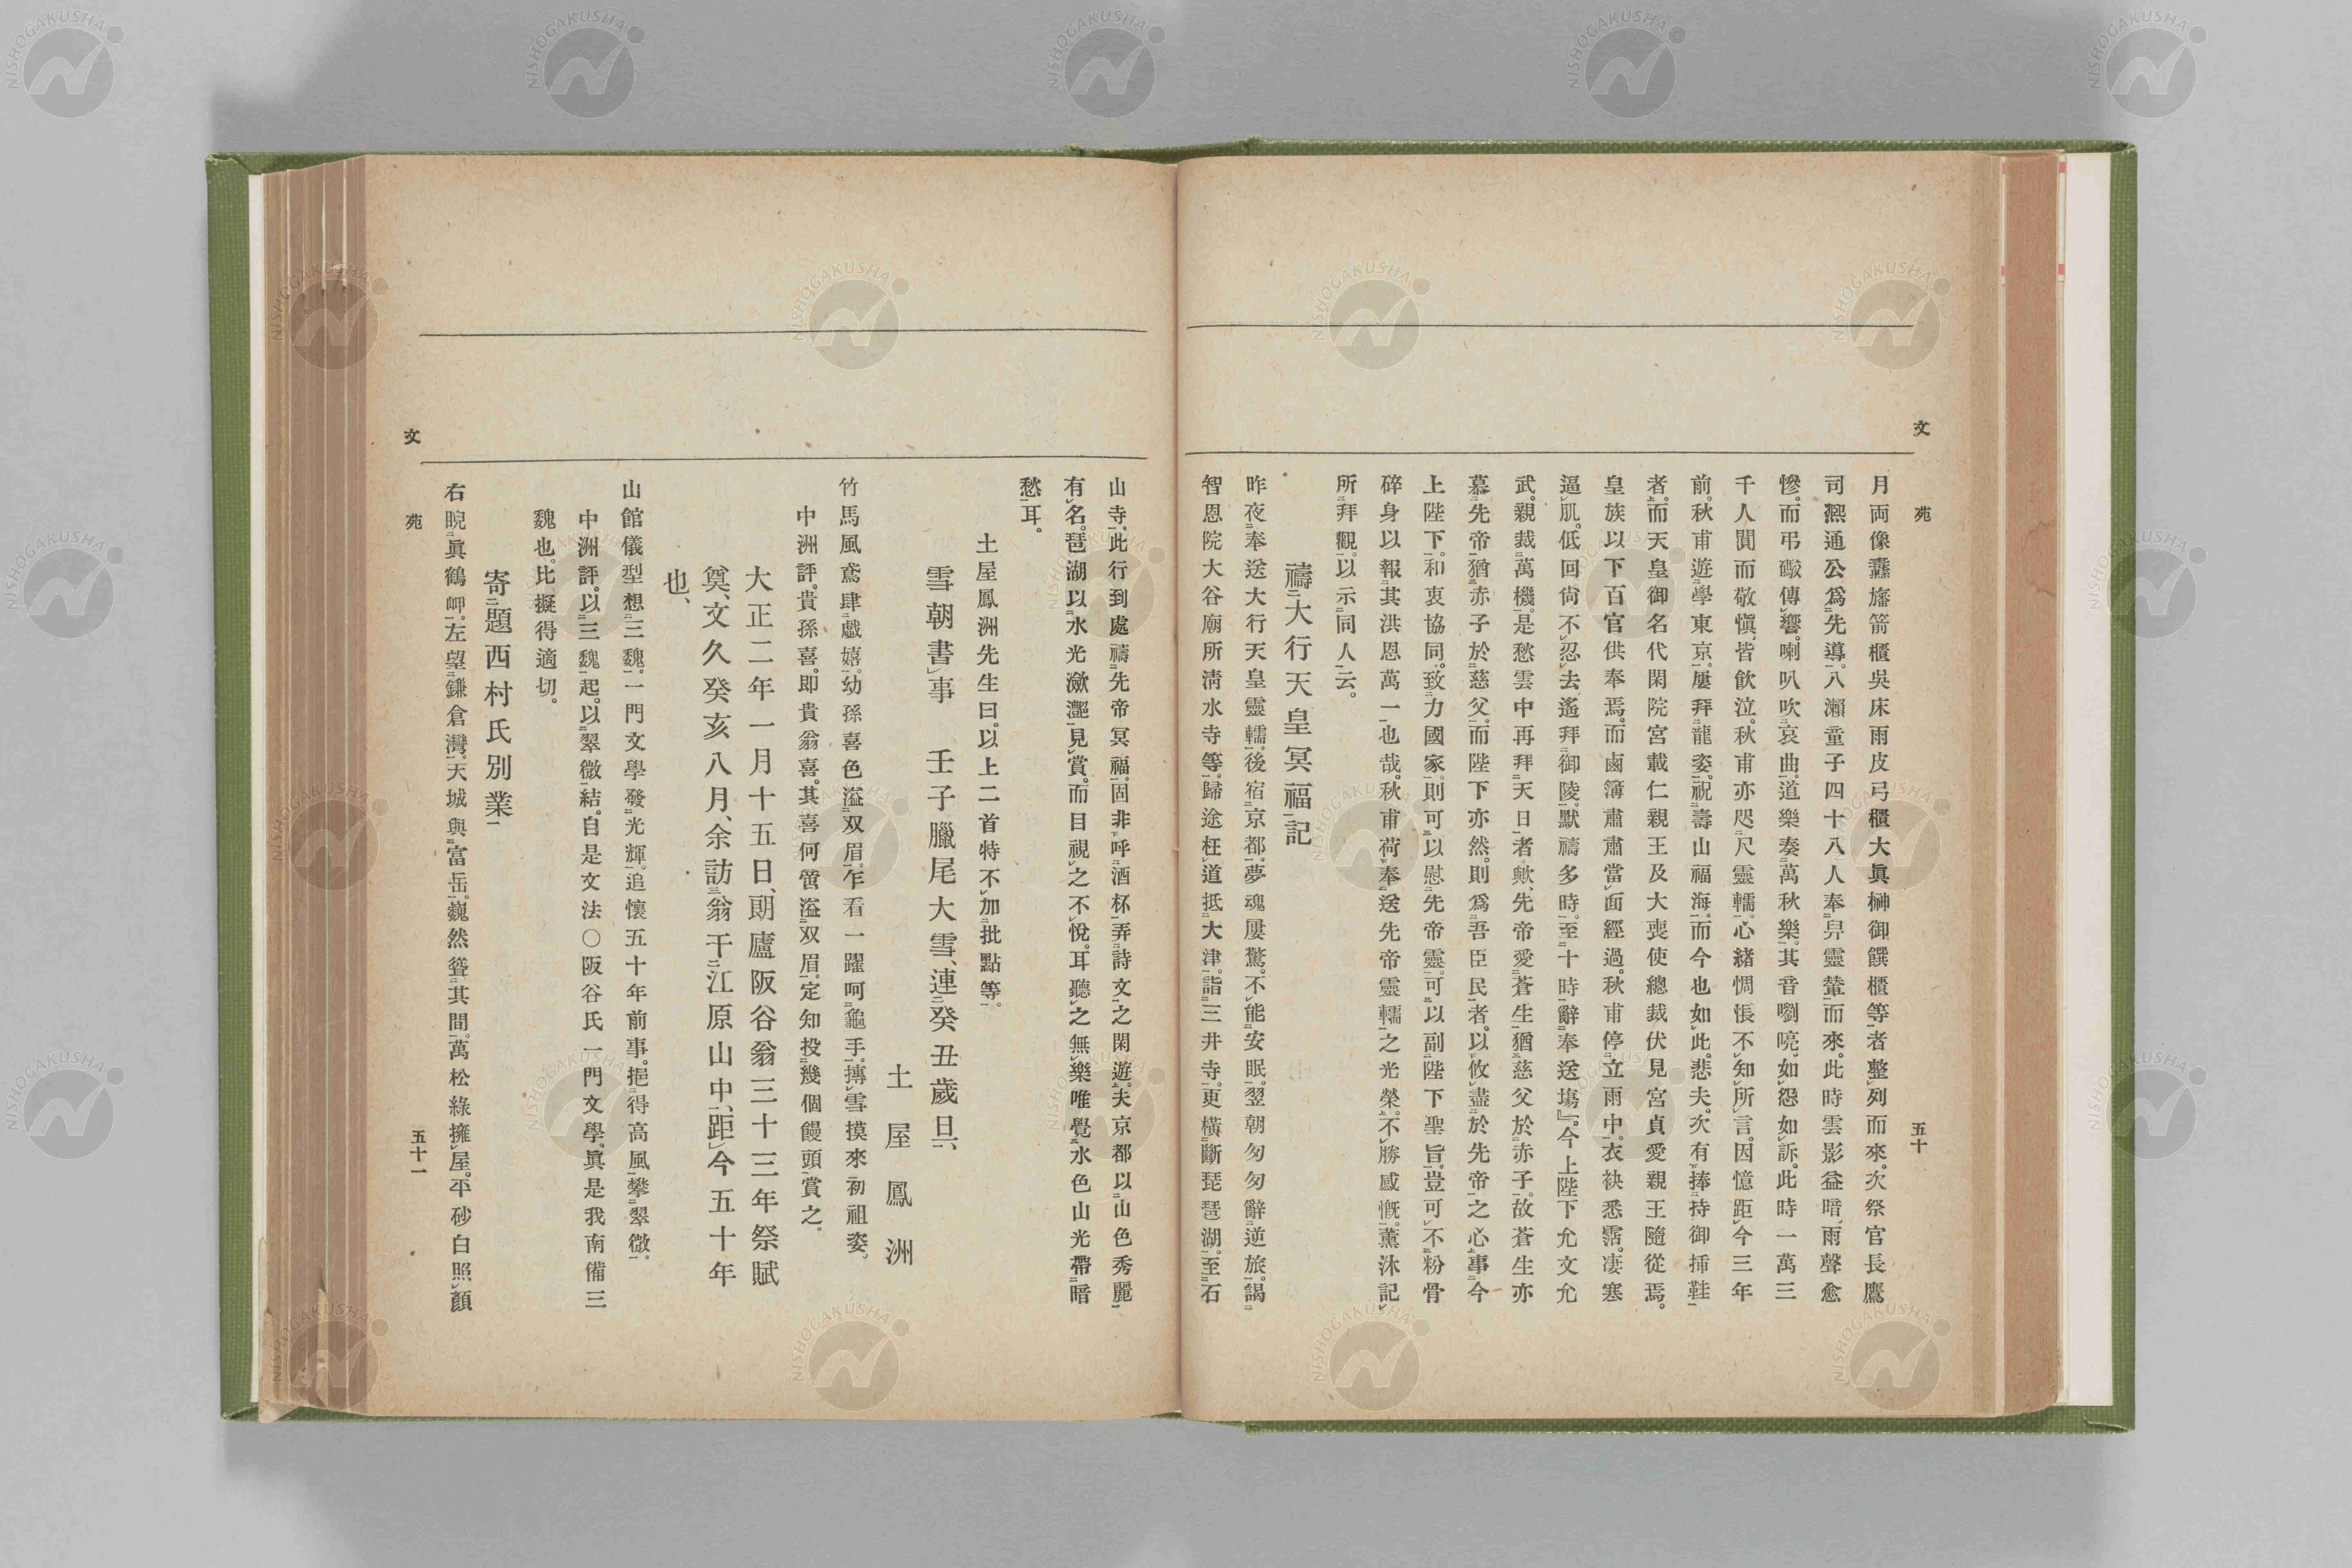 文苑
五十
月両像纛旛箭櫃吳床雨皮弓櫃大眞榊御饌櫃等者整列而來。次祭官長鷹
司凞通公爲先導。八瀨童子四十八人奉舁靈輦而來。此時雲影益暗、雨聲愈
慘。而弔礮傳響。喇叭吹哀曲。道樂奏萬秋樂。其音嚠喨。如怨如訴。此時一萬三
千人閴而敬愼、皆飮泣。秋甫亦咫尺靈轜。心緖惆悵不知所言。因憶距今三年
前。秋甫遊學東京。屢拜龍姿。祝壽山福海。而今也如此。悲夫。次有捧持御挿鞋
者。而天皇御名代閑院宮載仁親王及大喪使總裁伏見宮貞愛親王隨從焉。
皇族以下百官供奉焉。而鹵簿肅肅當面經過。秋甫停立雨中。衣袂悉霑。凄寒
逼肌。低回尙不忍去遙拜御陵。默禱多時。至十時辭奉送塲』。今上陛下允文允
武。親裁萬機。是愁雲中再拜天日者歟、先帝愛蒼生猶慈父於赤子。故蒼生亦
慕先帝猶赤子於慈父。而陛下亦然。則爲吾臣民者。以攸盡於先帝之心事今
上陛下。和衷協同。致力國家。則可以慰先帝靈。可以副陛下聖旨。豈可不粉骨
碎身以報其洪恩萬一也哉。秋甫荷奉送先帝靈轜之光榮。不勝感慨。薰沐記
所拜觀。以示同人云。
禱大行天皇冥福記
昨夜奉送大行天皇靈轜。後宿京都。夢魂屢驚。不能安眠。翌朝匆匆辭逆旅。謁
智恩院大谷廟所淸水寺等。歸途枉道抵大津。詣三井寺。更橫斷琵琶湖。至石
山寺。此行到處禱先帝冥福。固非呼酒杯弄詩文之閑遊。夫京都以山色秀麗
有名。琶湖以水光瀲灔見賞。而目視之不悅。耳聽之無樂唯覺水色山光帶暗
愁耳。
土屋鳳洲先生曰。以上二首特不加批點等。
雪朝書事　壬子臘尾大雪、連癸丑歲旦、
土屋鳳洲
竹馬風鳶肆戲嬉。幼孫喜色溢双眉。乍看一躍呵龜手。摶雪摸來初祖姿。
中洲評。貴孫喜。即貴翁喜。其喜何啻溢双眉。定知投幾個饅頭賞之。
大正二年一月十五日、朗廬阪谷翁三十三年祭賦
奠、文久癸亥八月、余訪翁于江原山中、距今五十年
也、
山館儀型想三魏。一門文學發光輝。追懷五十年前事。挹得高風攀翠微。
中洲評。以三魏起。以翠微結。自是文法〇阪谷氏一門文學。眞是我南備三
魏也。比擬得適切。
寄題西村氏別業
右睨眞鶴岬。左望鎌倉灣。天城與富岳。巍然聳其間。萬松綠擁屋。平砂白照顏
文苑
五十一